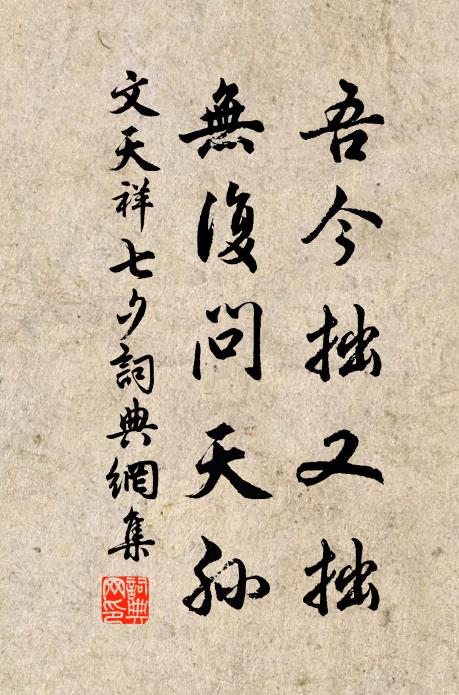 吾今拙又拙
無復問天孫
文天祥七夕詞典網集
詞典
网印